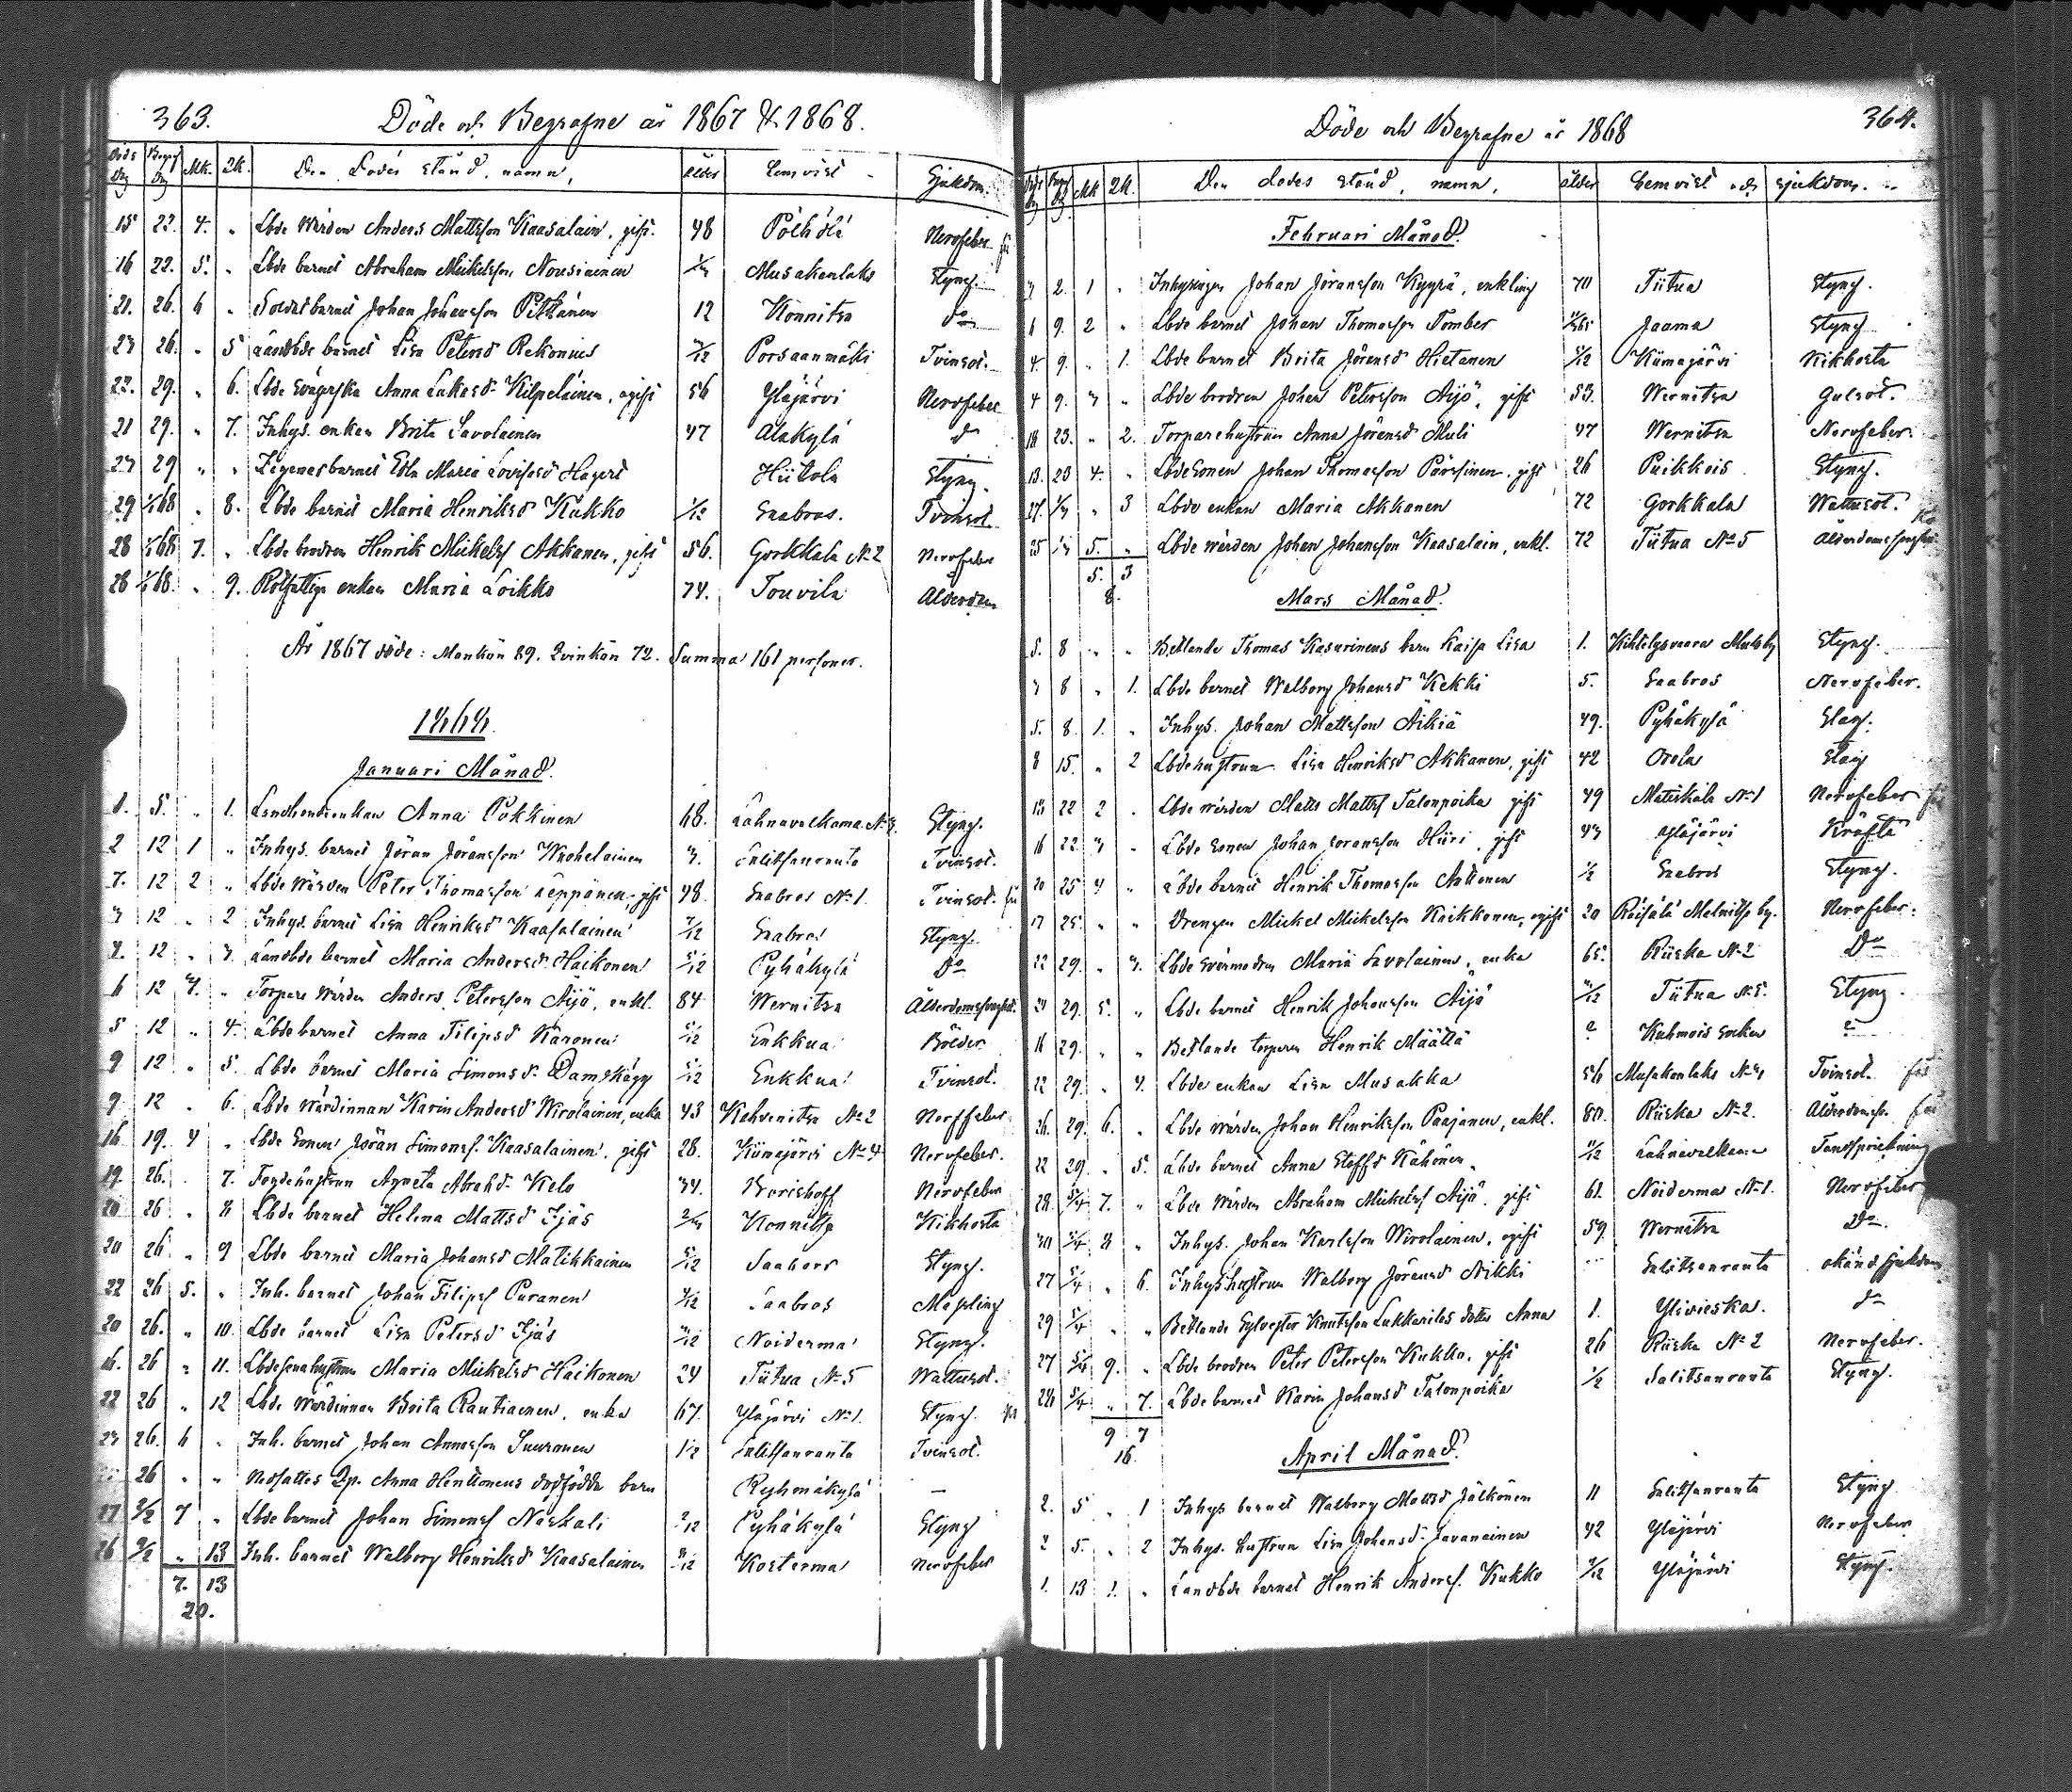 363. Döde och Begrafne år 1867 & 1868.
Döds dag Begr dag Mk. Qk. Den Dödes stånd, namn, ålder Hemvist Sjukdom.
15 22. 4. " Lbde Wärden Anders Mattsson Kaasalain, gift. 48 Pölhölä Nervfeber
16 22. 5. " Lbde barnet Abraham Mickelsson Nousiainen Musakanlaks Styng.
21. 26. 6 " Soldat barnet Johan Johansson Pitkänen 12 Konnitsa do
26. " 5 Landtbde barnet Lisa Petersd Rekonius Porsaanmäki Tvinsot.
22. 29. " 6. Lbde Svägerska Anna Lukasd. Kilpeläinen, ogift 56 Yläjärvi Nervfeber
21 29. " 7. Inhys. enkan Brita Savolainen 47 Alakylä do
29 " " Zigenarbarnet Edla Maria Lovisasd Hagert Hiitola Styng.
29 1/1 68 " 8. Lbde barnet Maria Henriksd Kukko 1/12 Saabros. Tvinsot.
28 1/1 68 7. " Lbde brodren Henrik Mickelss Akkanen, gift 56. Gorkkala No 2 Nervfeber
28 1/1 68. " 9. Rotfattige enkan Maria Loikko 74. Touvila Ålderdom
År 1867 döde: Mankön 89. Qvinkön 72. Summa 161 personer.
1868.
Januari Månad.
1. 5. " 1. Landtbondeenkan Anna Pokkinen 68. Lahnavalkama No 3. Styng.
2 12 1 " Inhys. barnet Jöran Jöransson Wuohelainen 3. Salitsanranta Tvinsot.
7. 12 2 " Lbde Wärden Peter Thomasson Leppänen, gift 48. Saabros No 1. Tvinsot.
3 12 " 2 Inhys. barnet Lisa Henriksd Kaasalainen 7/12 Saabros Styng.
12 " 3 Landtbde barnet Maria Andersd. Haikonen 5/12 Pyhäkylä Do
6 12 " Torpare Wärden Anders Petersson Äijö, enkl. 84 Wernitsa Ålderdomssvaghet.
5 12 " 4. Lbde barnet Anna Filipsd Karonen 5/12 Sukkua Bölder
9 12 " 5. Lbde barnet Maria Simonsd. Damskägg 5/12 Sukkua Tvinsot.
9 12 " 6. Lbde Wärdinnan Karin Andersd Wirolainen, enka 43 Kahvenitsa No 2 Nervfeber
16 19. " Lbde Sonen Jöran Simonss. Kaasalainen. gift 28. Kiimajärvi No 4 Nervfeber.
19. 26. " 7. Fogdehustrun Agneta Abrahd. Kelo 34. Borishoff Nervfeber
20 26 " 8 Lbde barnet Helena Mattsd Ijäs Konnitsa Kikhosta
20 26 " 9 Lbde barnet Maria Johansd Matikkainen 5/12 Saabros Styng.
22 26 5. " Inh. barnet Johan Filipss Puranen Saabros Messling
20 26. " 10. Lbde barnet Lisa Petersd Ijäs Noiderma Styng.
16. 26 " 11. Lbdesonahustrun Maria Mickelsd Haikonen 24 Tiitua No 5 Wattusot.
22 26 " 12 Lbde Wärdinnan Brita Rautiainen, enka 67. Yläjärvi No 1. Styng.
26. 6 " Inh. barnet Johan Annasson Suuronen 1/2 Salitsanranta Tvinsot.
26 " " Nedsattes Qp. Anna Henttonens dödfödda barn Ryhmäkylä —
27 2/2 7 " Lbde barnet Johan Simonss Näskali 2/12 Pyhäkylä Styng
26 2/2 " 13 Inh. barnet Walborg Henriksd Kaasalainen Kosterma Nervfeber
7. 13
20.
Döde och Begrafne år 1868 364.
Döds dag Begr dag Mk Qk. Den dödes stånd, namn, ålder Hemvist och sjukdom.
Februari Månad.
2. 1 " Inhysingen Johan Jöransson Kyyrä, enkling 70 Tiitua Styng.
6 9. 2 " Lbde barnet Johan Thomasson Tomber Jaama Styng
4. 9. " 1. Lbde barnet Brita Jöransd Hietanen Kiimajärvi Kikhosta
4 9. 3 " Lbde brodren Johan Petersson Äijö, gift 53. Wernitsa Gulsot.
18 23. " 2. Torparehustrun Anna Jöransd Muli 47 Wernitsa Nervfeber.
13. 23 4. " LbdeSonen Johan Thomasson Pärssinen, gift 26 Puikkois Styng.
27. " 3 Lbde enkan Maria Akkanen 72 Gorkkala Wattusot.
25 5. " Lbde wärden Johan Johansson Kaasalain, enkl. 72 Tiitua No 5 Ålderdomssvaghet
5. 3
8.
Mars Månad.
5. 8 " " Betlande Thomas Kasurinens barn Kaisa Lisa 1. Kihtelysvaara Styng.
3 8 " 1. Lbde barnet Walborg Johansd Kekki 5. Saabros Nervfeber.
5. 8 1. " Inhys. Johan Mattsson Äikiä 49. Pyhäkylä Slag.
8 15. " 2 Lbdehustrun Lisa Henriksd Akkanen, gift 42 Orola Slag
13 22 2 " Lbde wärden Matts Mattss Talonpoika gift 49 Matiskala No 1 Nervfeber
16 22 3 " Lbde sonen Johan Jöransson Hiiri, gift 43 Yläjärvi Kräfta
20 25 4 " Lbde barnet Henrik Thomasson Anttonen 1/2 Saabros Styng.
17 25. " " Drengen Mickel Mickelsson Koikkonen, ogift 20 Räisälä by. Nervfeber.
22 29. " 3. Lbde Svärmodren Maria Savolainen, enka 65. Riiska No 2 Do
29. 5. " Lbde barnet Henrik Johansson Äijö Tiitua No 5. Styng.
16 29. " " Betlande torparen Henrik Määttä ? Kuhmois Socken ?
22 29. " 4. Lbde enkan Lisa Musakka 56 Musakanlaks No 3 Tvinsot.
26. 29. 6. " Lbde wärden Johan Henriksson Paajanen, enkl. 80. Riiska No 2. Ålderdomss.
22 29. " 5. Lbde barnet Anna Staffsd Kähönen 11/12 Lahnavalkama Tandsprickning
28. 5/4 7. " Lbde Wärden Abraham Mickelss Äijö. gift 61. Noiderma No 1. Nervfeber
30 5/4 8 " Inhys. Johan Karlsson Wirolainen, ogift 59. Wernitsa Do.
27 5/4 " 6. Inhyshustrun Walborg Jöransd Nikki Salitsanranta okänd sjukdom
29 5/4 " " Betlande Sylvester Knutsson Lukkarilas dotter Anna 1. Ylivieska. do
27 5/4 9. " Lbde brodren Peter Petersson Kukko, gift 26 Riiska No 2 Nervfeber.
28 5/4 " 7. Lbde barnet Karin Johansd Talonpoika 1/2 Salitsanranta Styng.
9 7
16.
April Månad.
2. 5 " 1 Inhys barnet Walborg Mattsd Jälkönen 11 Salitsanranta Styng
2 5. " 2 Inhys. hustrun Lisa Johansd. Javanainen 42 Yläjärvi Nervfeber
1. 13 1. " Landtbde barnet Henrik Anderss. Kukko Yläjärvi Styng.